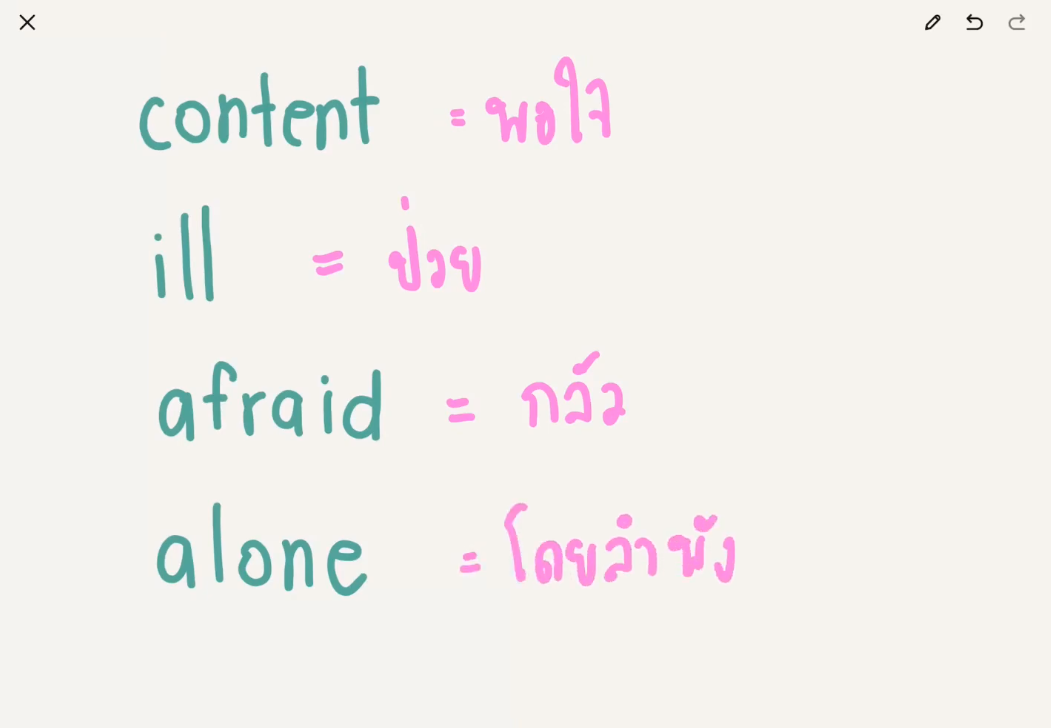 content = พอใจ
ill = ป่วย
afraid = กลัว
alone = โดยลำพัง